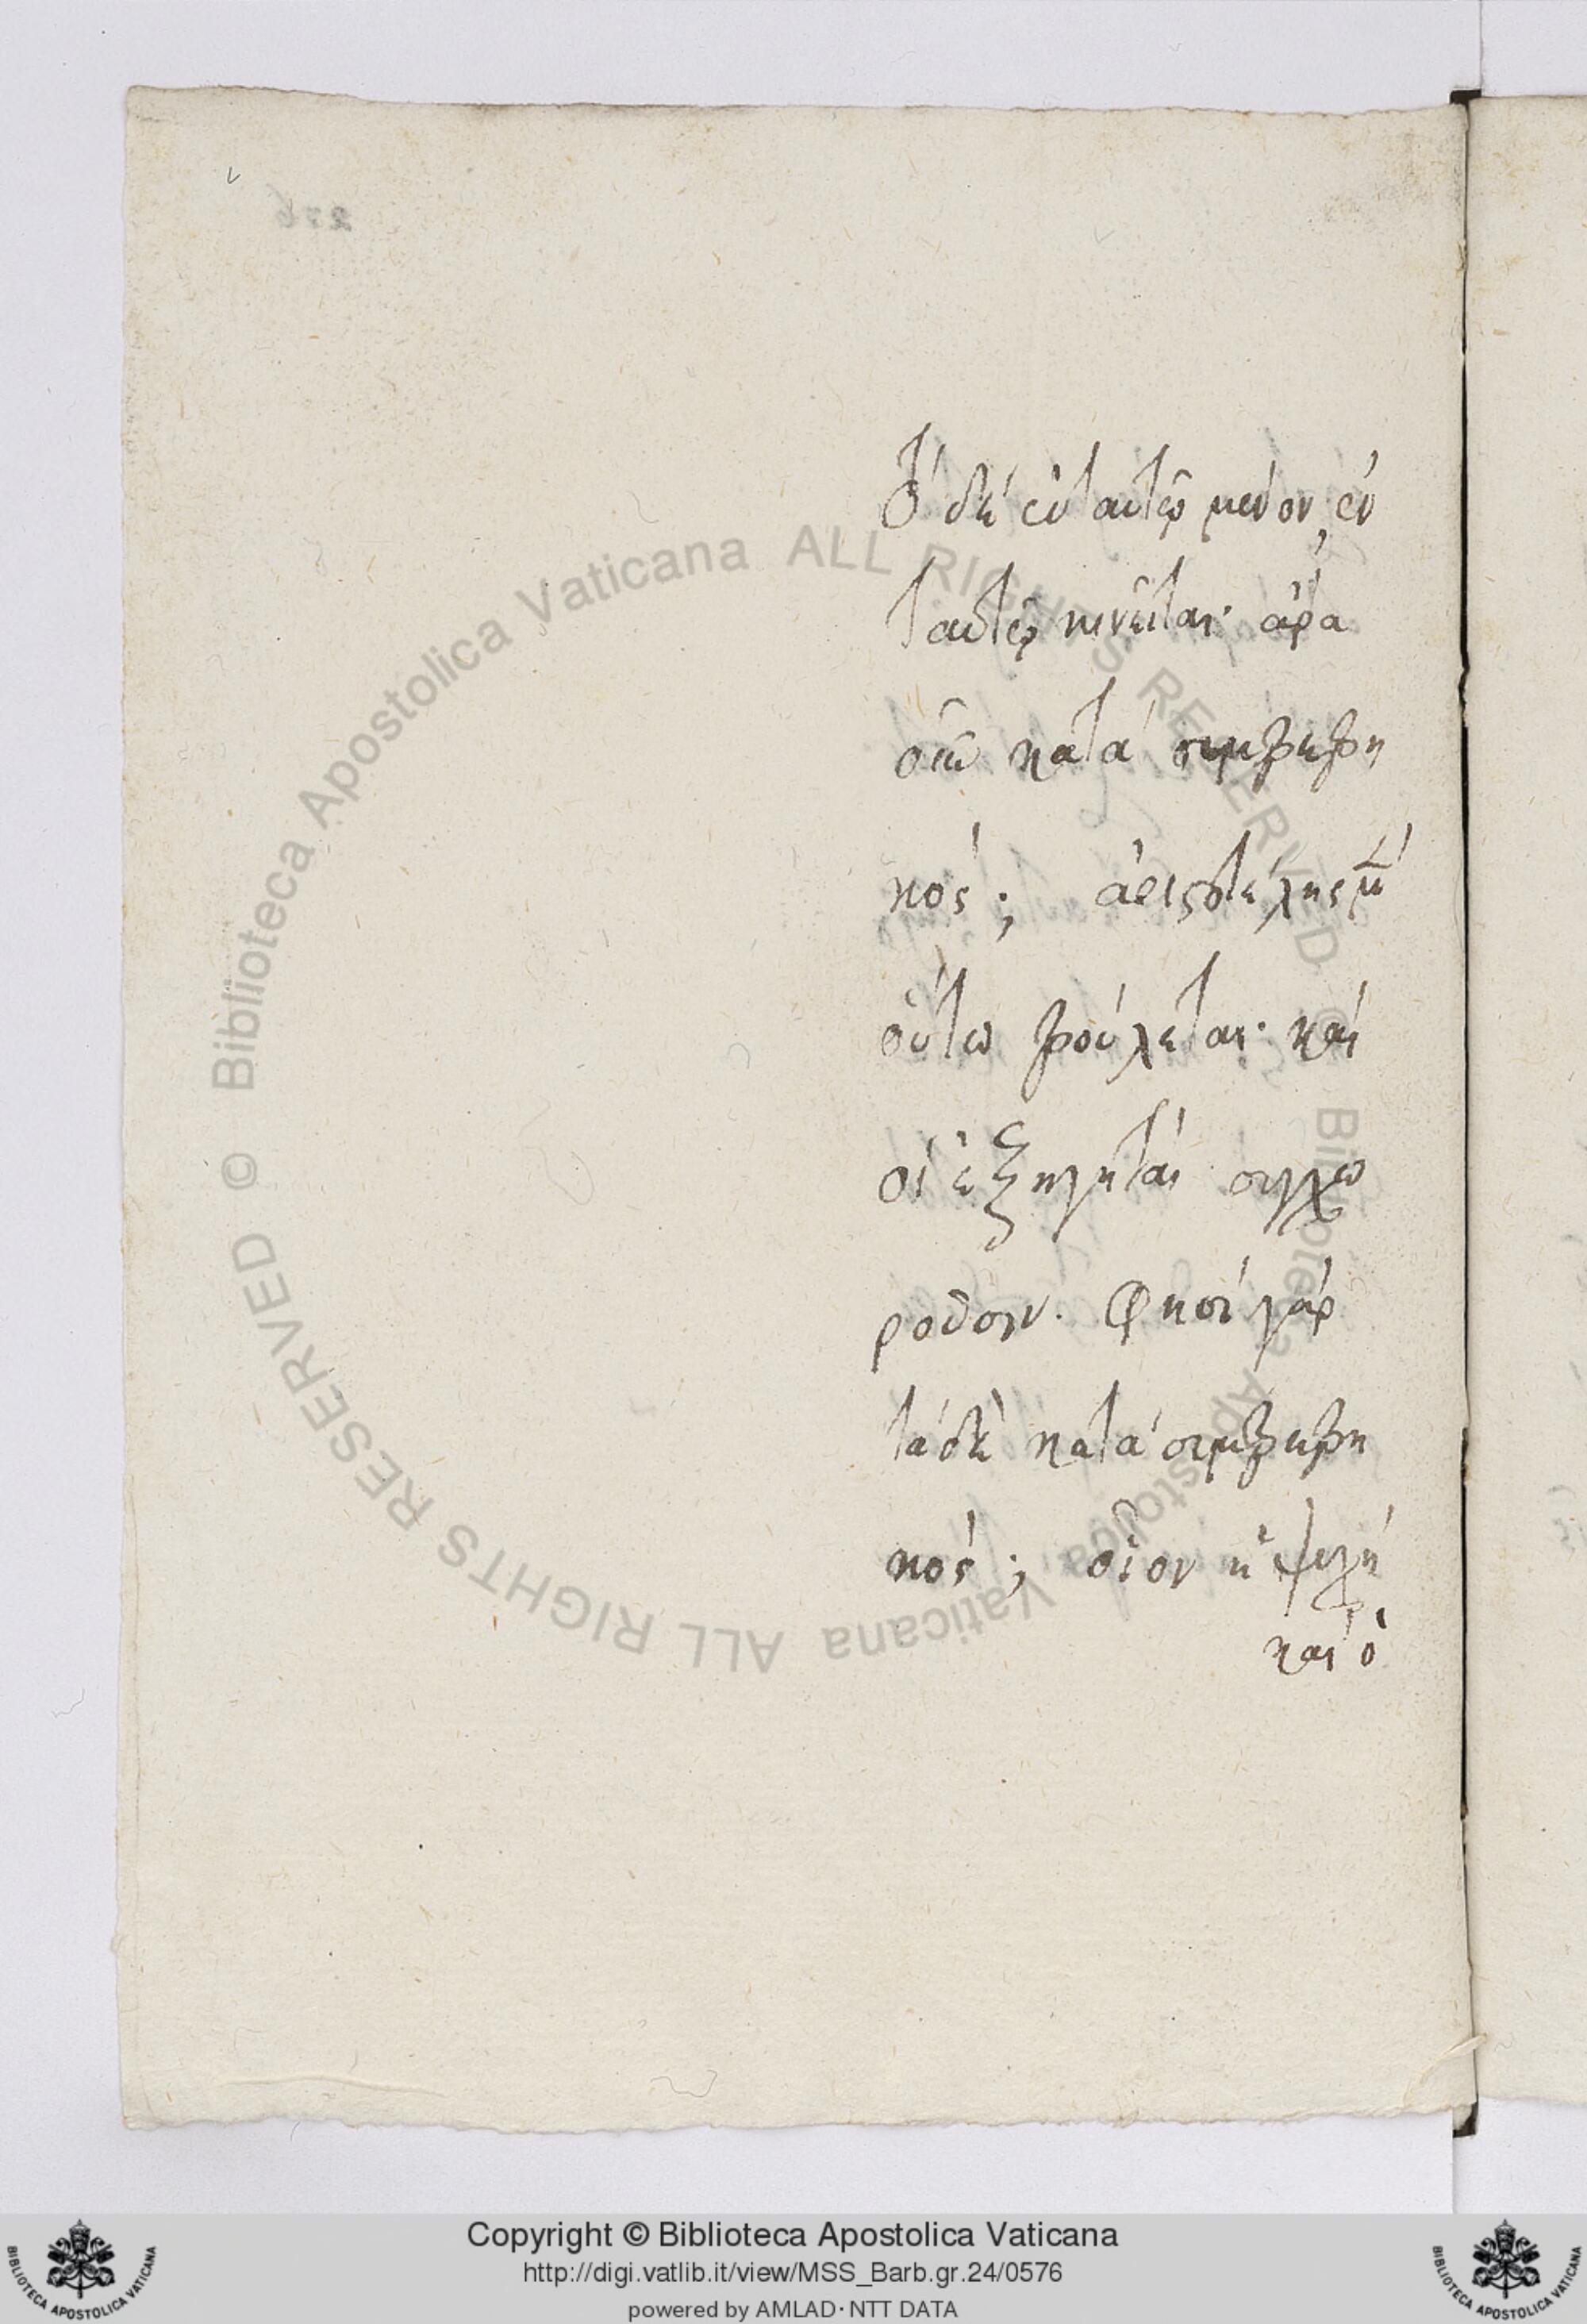 τό δέ ἐν ταυτῷ μένον, ἐν
ταυτῷ κινεῖται· ἆρα
κατά συμβεβη
κός; ἀριστοτέλης μὲν
οὕτω βούλεται· καί
οἱ ἐξηγηταί συγχω
ροῦσιν. φησί γάρ
τά δὲ κατά συμβεβη
κός; οἷον ἡ ψυχή
καί ὁ
226
Biblioteca Apostolica Vaticana ALL RIGHTS RESERVED © Biblioteca Apostolica Vaticana ALL RIGHTS RESERVED ©
Copyright © Biblioteca Apostolica Vaticana
http://digi.vatlib.it/view/MSS_Barb.gr.24/0576
powered by AMLAD · NTT DATA
BIBLIOTECA APOSTOLICA VATICANA
BIBLIOTECA APOSTOLICA VATICANA